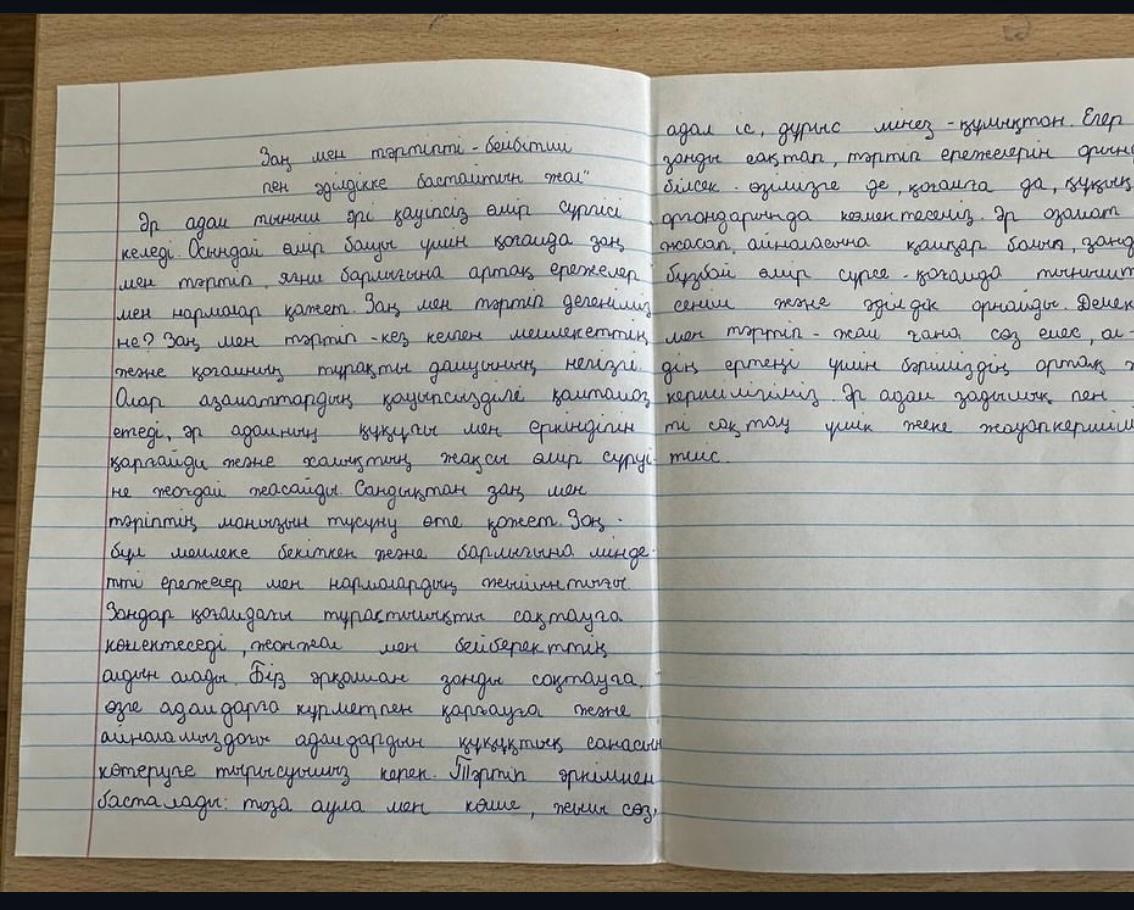 Заң мен тәртіпті - бейбітшіл
пен әділдікке бастайтын жол"
Әр адам тыныш әрі қауіпсіз өмір сүргісі
келеді. Осындай өмір болуы үшін қоғамда заң
мен тәртіп, яғни барлығына ортақ ережелер
мен нормалар қажет. Заң мен тәртіп дегеніміз
не? Заң мен тәртіп - кез келген мемлекеттің
және қоғамның тұрақты дамуының негізгі.
Олар азаматтардың қауыпсіздігі қамтамоз
етеді, әр адамның құқұғы мен еркіндігін
қорғайды және халықтың жақсы өмір сүруі-
не жағдай жасайды. Сондықтан заң мен
тәріптің маңызын түсуну өте қажет. Заң -
бұл мемлеке бекіткен және барлығына мінде-
тті ережелер мен нормалардың жыйынтығы.
Заңдар қоғамдағы тұрақтылықты сақтауға
көмектеседі, жанжал мен бейберекттің
алдын алады. Біз әрқашан заңды сақтауға,
өзге адамдарға құрметпен қарауға және
айналамыздағы адамдардың құқықтық санасын
көтеруге тырысуымыз керек. Тәртіп әркімнен
басталады: таза аула мен көше, жылы сөз,
адал іс, дұрыс мінез - құлықтан. Егер
заңды сақтап, тәртіп ережелерін орын
білсек - өзімізге де, қоғамға да, құқық
органдарында көмектесеміз. Әр азамат
жасап, айналасына қамқор болып, заңд
бұзбай өмір сүрсе - қоғамда тынышт
сенім және әділдік орнайды. Демек
мен тәртіп - жай ғана сөз емес, ел-
дің ертеңі үшін бәріміздің ортақ ж
кершілігіміз. Әр адам заңдылық пен
ті сақтау үшін жеке жауапкершілі
тиіс.